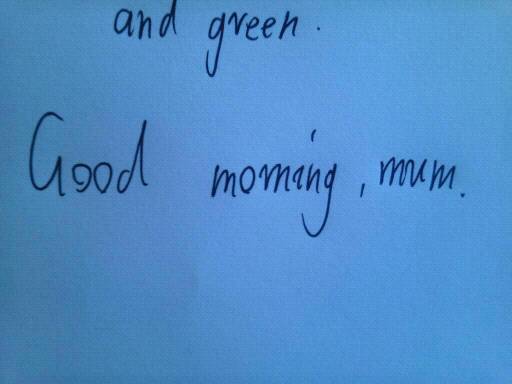 and green.
Good morning, mum.